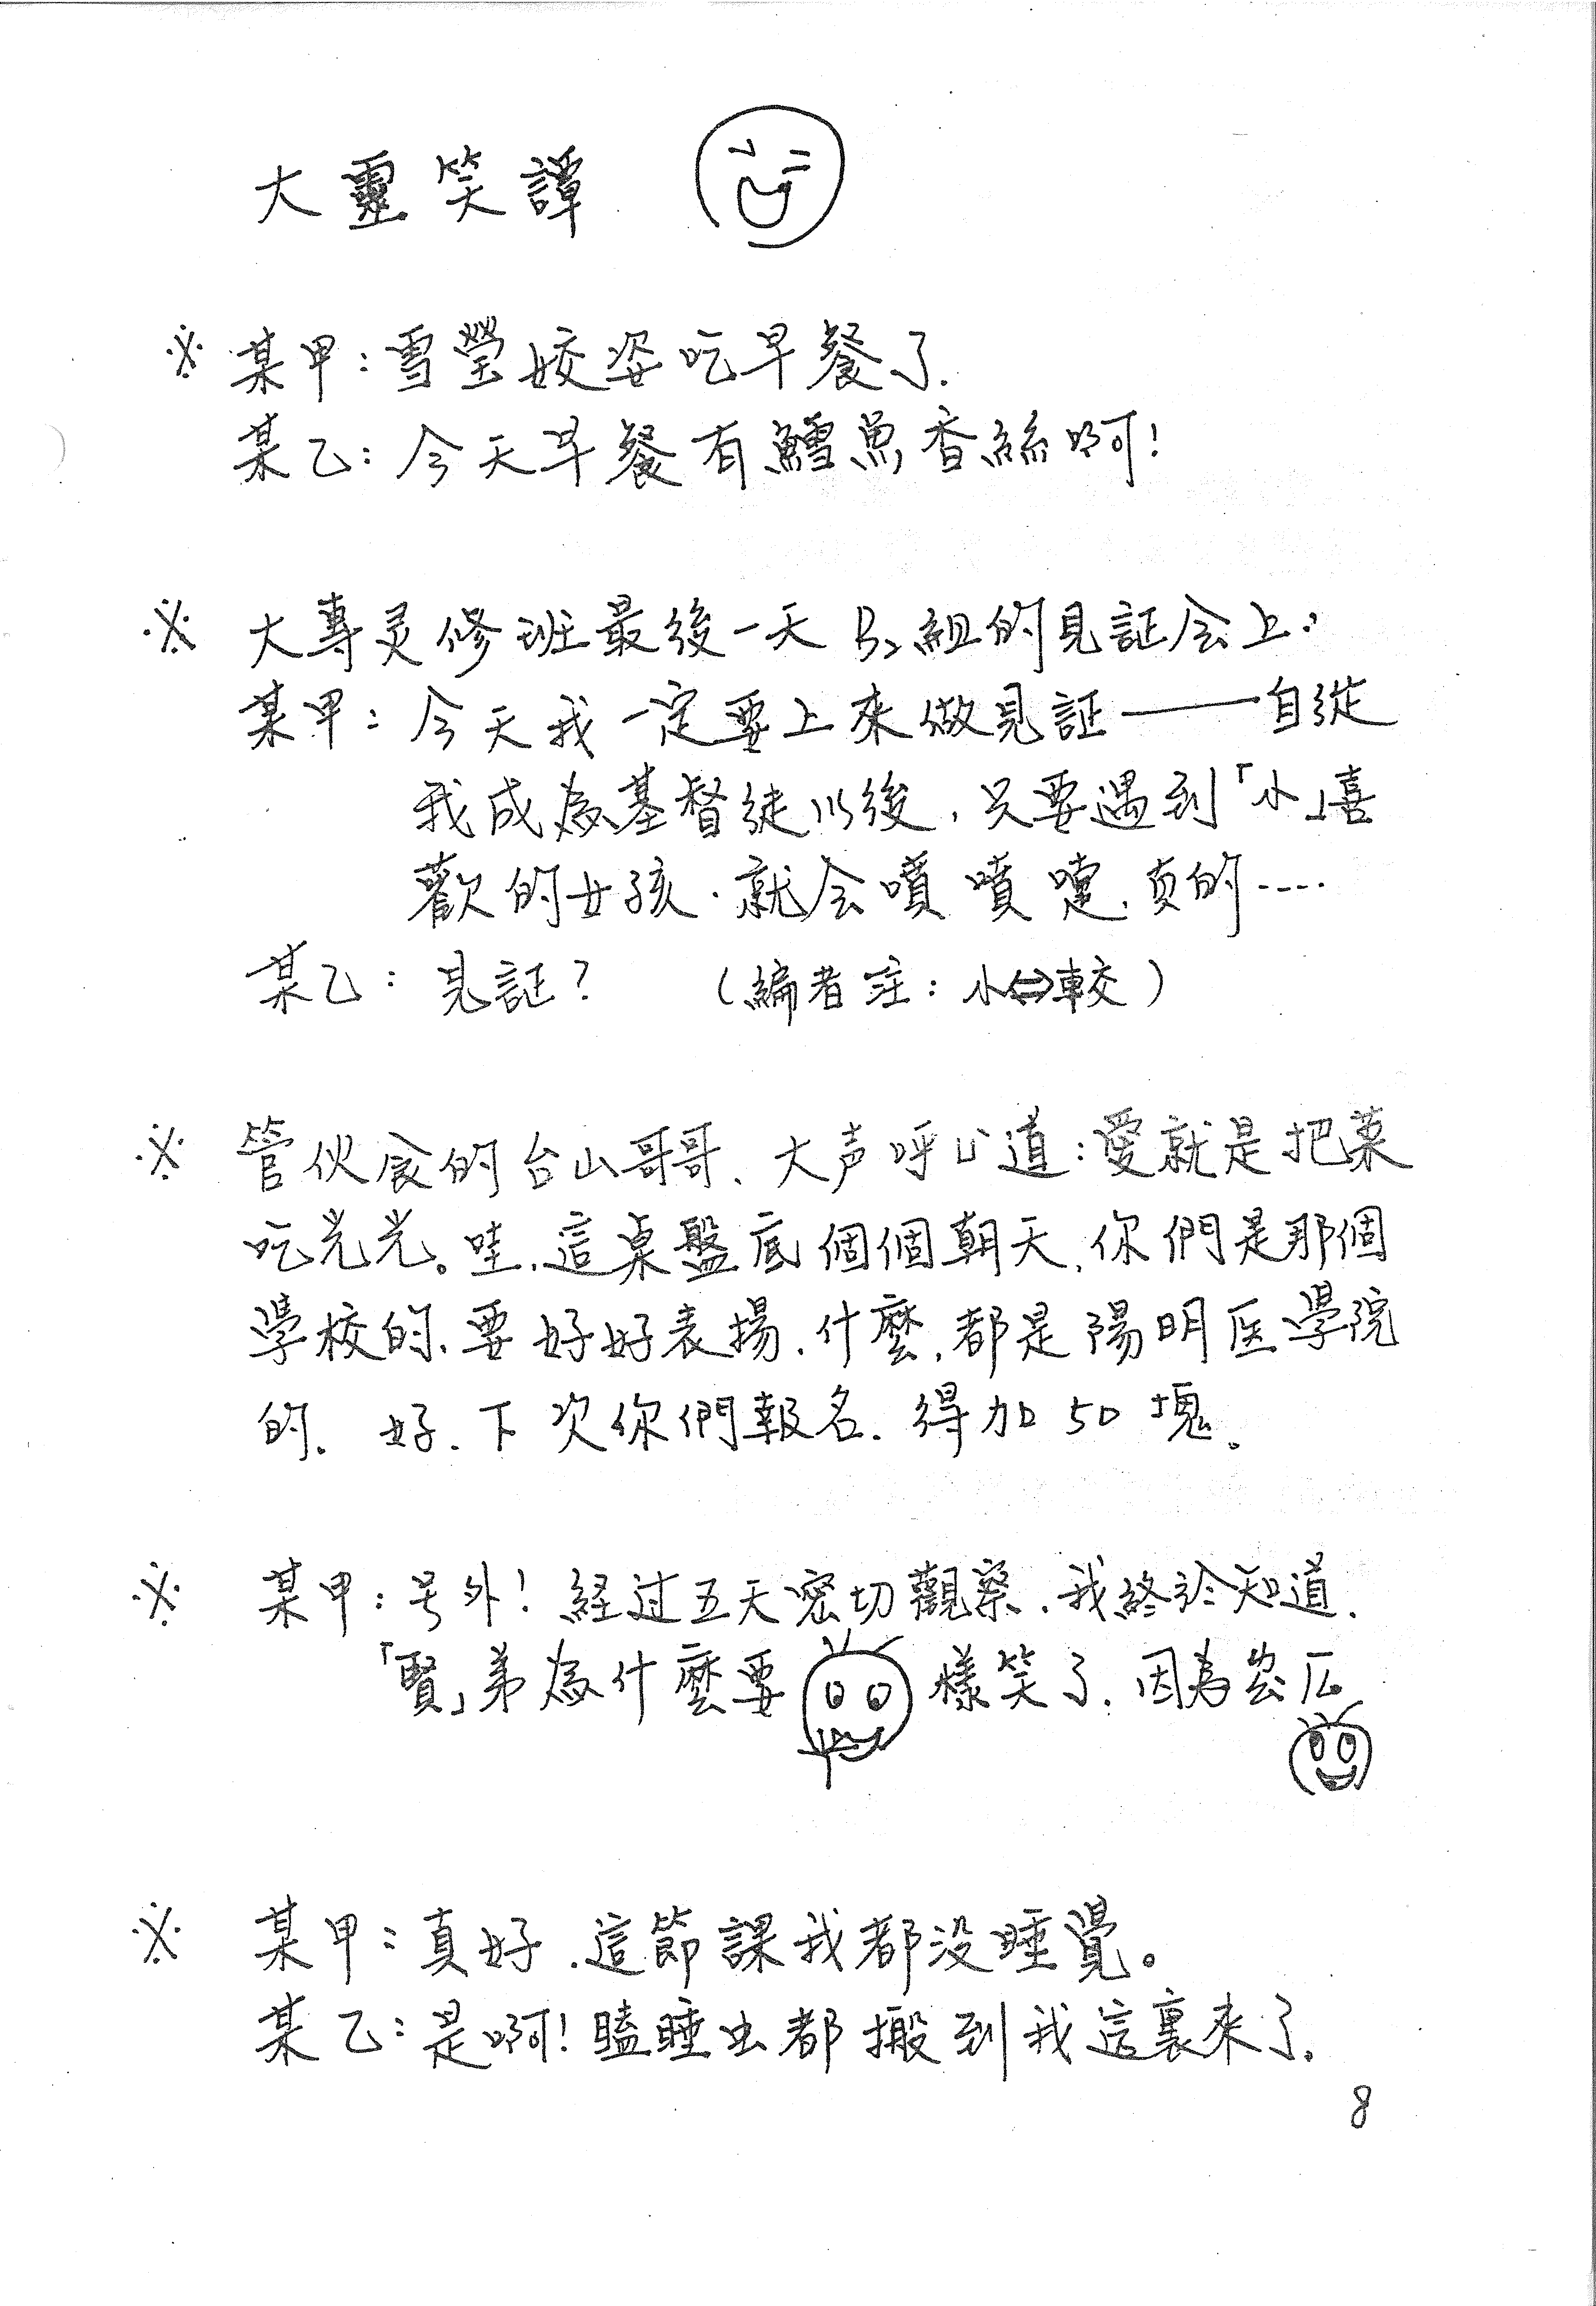 大靈笑譚
※ 某甲：雪瑩姣姿吃早餐了.
某乙：今天早餐有鱈魚香絲啊！
※ 大專灵修班最後一天 B₂組的見証会上：
某甲：今天我一定要上來做見証——自從
我成為基督徒以後，只要遇到「小」喜
歡的女孩．就会噴噴嚏，真的----
某乙：見証？ （編者註：小⇔較）
※ 管伙食的台山哥哥、大声呼山道：愛就是把菜
吃光光。哇，這桌盤底個個朝天，你們是那個
學校的、要好好表揚．什麼，都是陽明医學院
的．好．下次你們報名．得加50塊。
※ 某甲：号外！経过五天密切觀察．我終於知道．
「賢」弟為什麼要 樣笑了．因為
※ 某甲：真好．這節課我都没睡覺。
某乙：是啊！瞌睡虫都搬到我這裏來了．
8